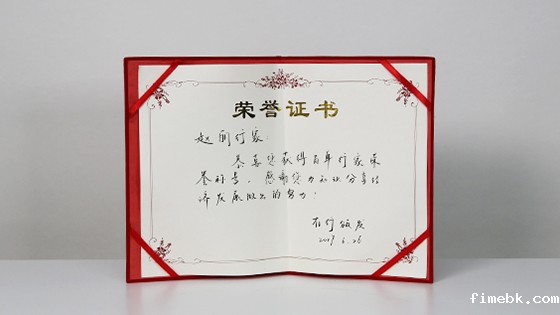 荣誉证书
赵丽行家:
恭喜您获得百单行家荣
誉称号,感谢您为认知分享经
济发展做出的努力!
在行颁发
2017.6.26
fimebk.com